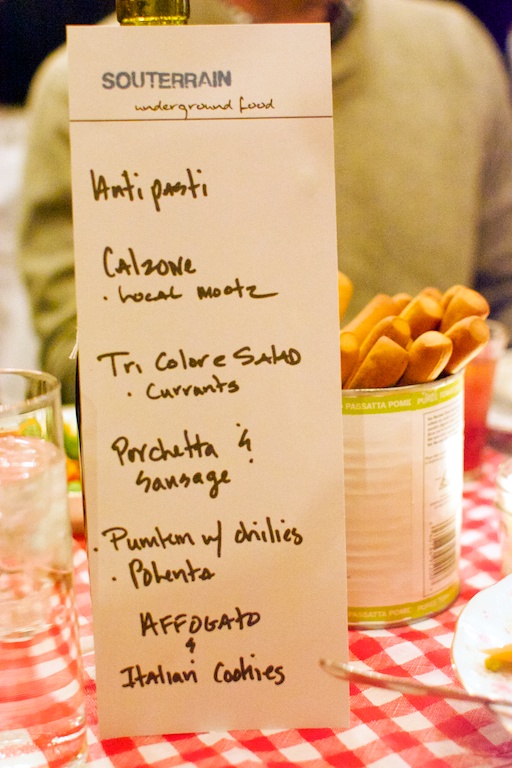 SOUTERRAIN
underground food
Antipasti
Calzone
• Local mootz
Tri Colore Salad
• Currants
Porchetta &
Sausage
• Pumkin w/ chilies
• Polenta
AFFOGATO
&
Italian Cookies
PASSATTA POMI
PASSATTA POMI